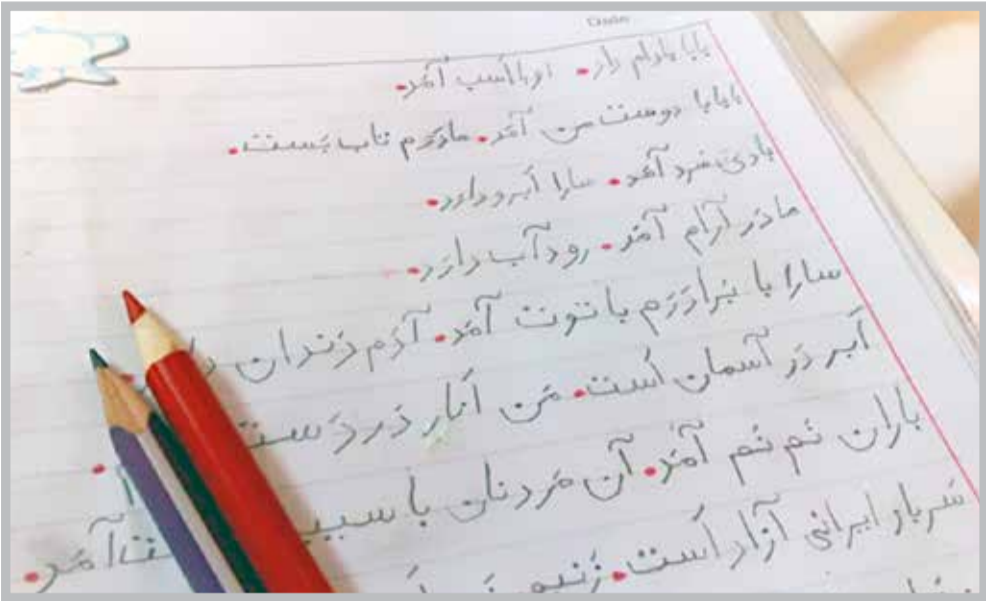 بابا بادام داد. او با اسب آمَد.
بابا با دوست من آمَد. مادَرَم تاب بَست.
بادِ سَرد آمَد. سارا اَبرو دارَد.
مادَر آرام آمَد. رود آب دارَد.
سارا با بَرادَرَم با توت آمَد. آدَم دَندان
اَبر دَر آسمان اَست. مَن اَنار دَر دَست
باران نَم نَم آمَد. آن مَرد نان با سیب آمَد.
سَرباز ایرانی آزاد اَست.